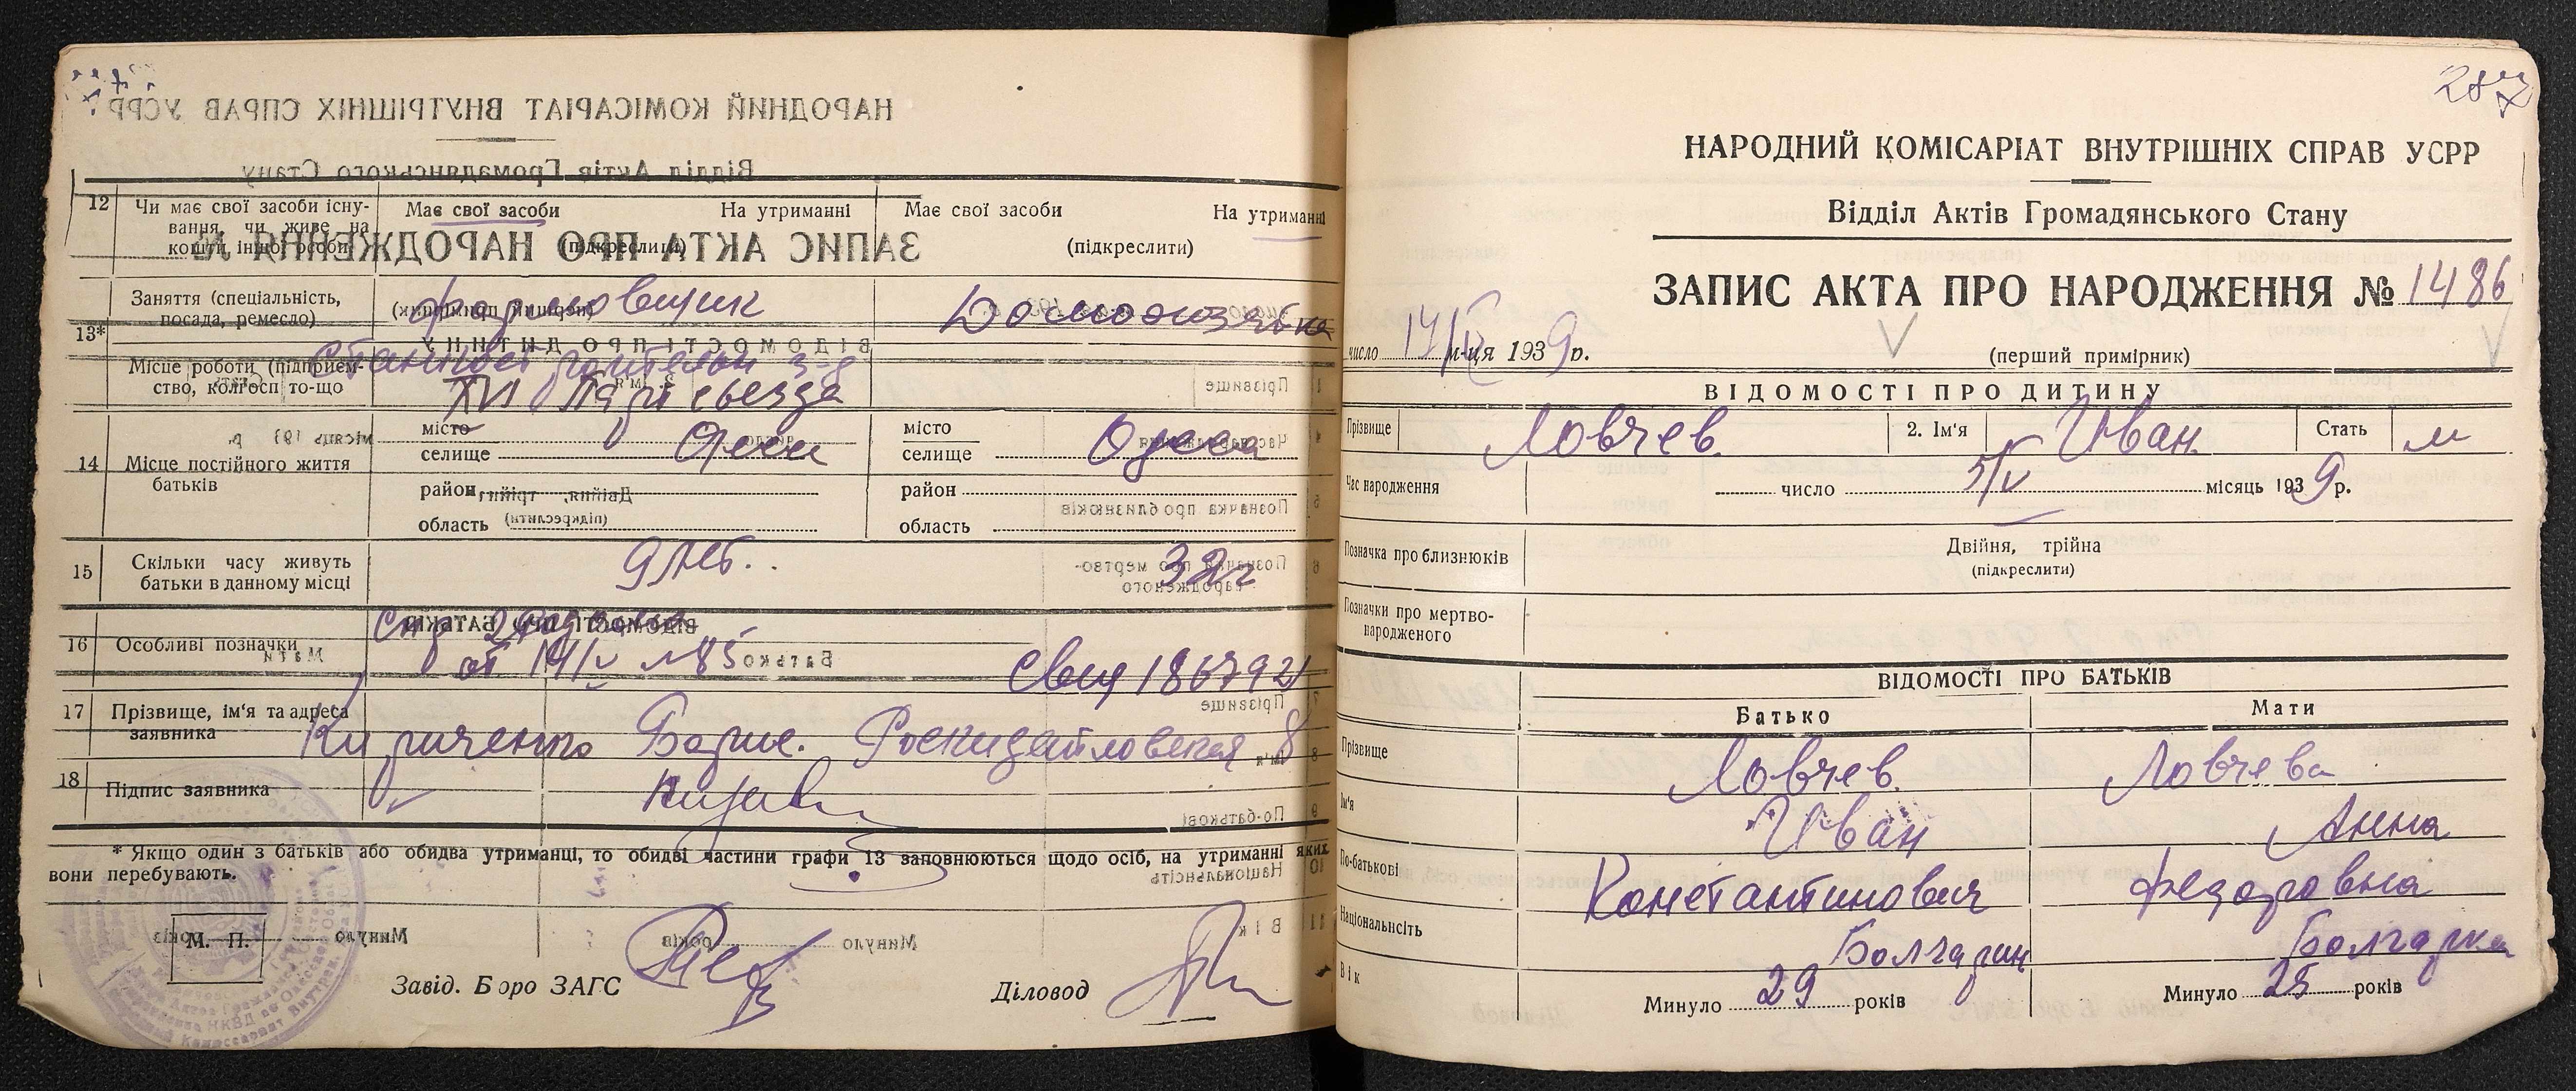 12 Чи має свої засоби існу-
вання, чи живе на
кошти іншої особи
Має свої засоби На утриманні
(підкреслити)
Має свої засоби На утриманні
(підкреслити)
13* Заняття (спеціальність,
посада, ремесло)
формовщик
Домохозяйка
Місце роботи (підприєм-
ство, колгосп то-що
XVI Парт съезда
14 Місце постійного життя
батьків
місто
селище
район
область
місто Одеса
селище
район
область
15 Скільки часу живуть
батьки в данному місці
9 лет.
16 Особливі позначки
от 14/V №85
Свид 186792
17 Прізвище, ім'я та адреса
заявника
Кириченко Борис. Роскидайловская 8
18 Підпис заявника
* Якщо один з батьків або обидва утриманці, то обидві частини графи 13 заповнюються щодо осіб, на утриманні яких
вони перебувають.
М. П.
Завід. Бюро ЗАГС
Діловод
287
НАРОДНИЙ КОМІСАРІАТ ВНУТРІШНІХ СПРАВ УСРР
Відділ Актів Громадянського Стану
ЗАПИС АКТА ПРО НАРОДЖЕННЯ № 1486
число 14/V м-ця 1939 р.
(перший примірник)
ВІДОМОСТІ ПРО ДИТИНУ
Прізвище Ловчев 2. Ім'я Иван Стать м
Час народження число 5/V місяць 1939 р.
Позначка про близнюків
Двійня, трійна
(підкреслити)
Позначки про мертво-
народженого
ВІДОМОСТІ ПРО БАТЬКІВ
Батько Мати
Прізвище Ловчев Ловчева
Ім'я Иван Анна
По-батькові Константинович Федоровна
Національність Болгарин Болгарка
Вік Минуло 29 років Минуло 25 років